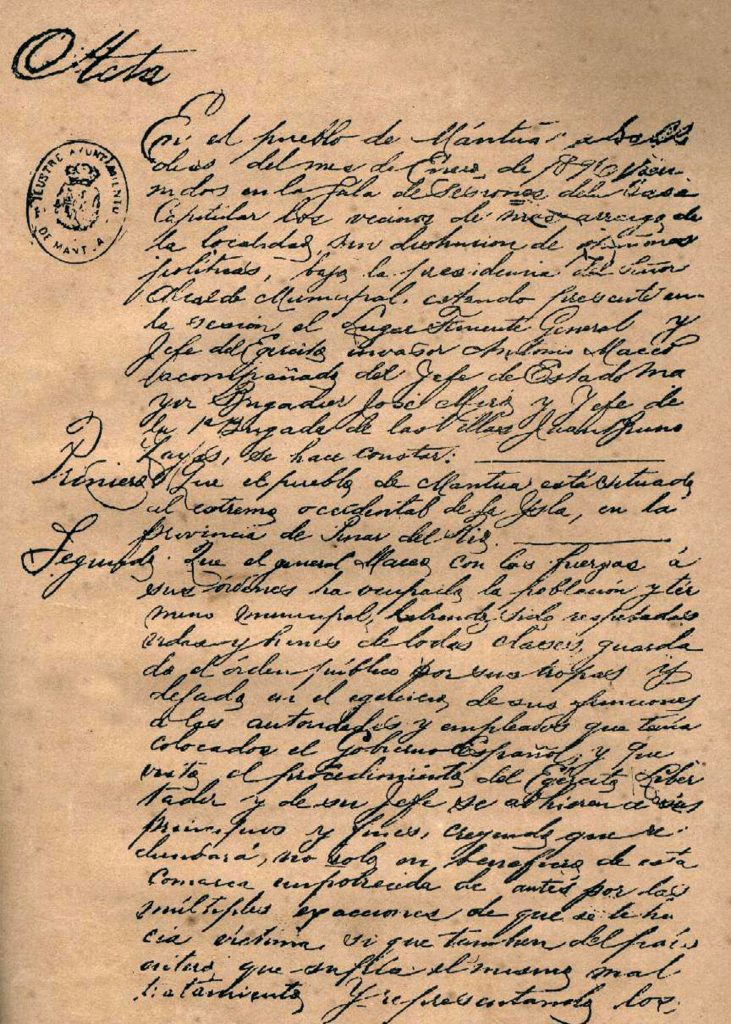 Acta
ILUSTRE AYUNTAMIENTO
DE MANTUA
En el pueblo de Mántua a los
dias del mes de Enero de 1896 reu-
nidos en la Sala de Sesiones de la Casa
Capitular los vecinos de mas arraigo de
la localidad, sin distincion de opiniones
politicas, bajo la presidencia del Señor
Alcalde Municipal, estando presente en
la sesion el Lugar Teniente General y
Jefe del Ejercito invasor Antonio Maceo
acompañado del Jefe de Estado Ma
yor Brigadier José Miró y Jefe de
la 1ª Brigada de las Villas Juan Bruno
Zayas, se hace constar:
Primero Que el pueblo de Mantua está situado
al estremo occidental de la Ysla, en la
provincia de Pinar del Rio.
Segundo. Que el general Maceo con las fuerzas á
sus órdenes ha ocupado la poblacion y tér
mino municipal, habiendo sido respetadas
vidas y bienes de todas clases, guarda
do el órden público por sus tropas y
dejado en el egercicio de sus funciones
á las autoridades y empleados que tenia
colocados el Gobierno Español, y que
visto el procedimiento del Egército Liber
tador y de su Jefe se adhieren á sus
principios y fines, creyendo que re-
dundará, no solo en beneficio de esta
comarca empobrecida de antes por las
múltiples exacciones de que se le ha
cia victima, si que tambien del
que sufria el mismo mal
tratamiento Y representando los